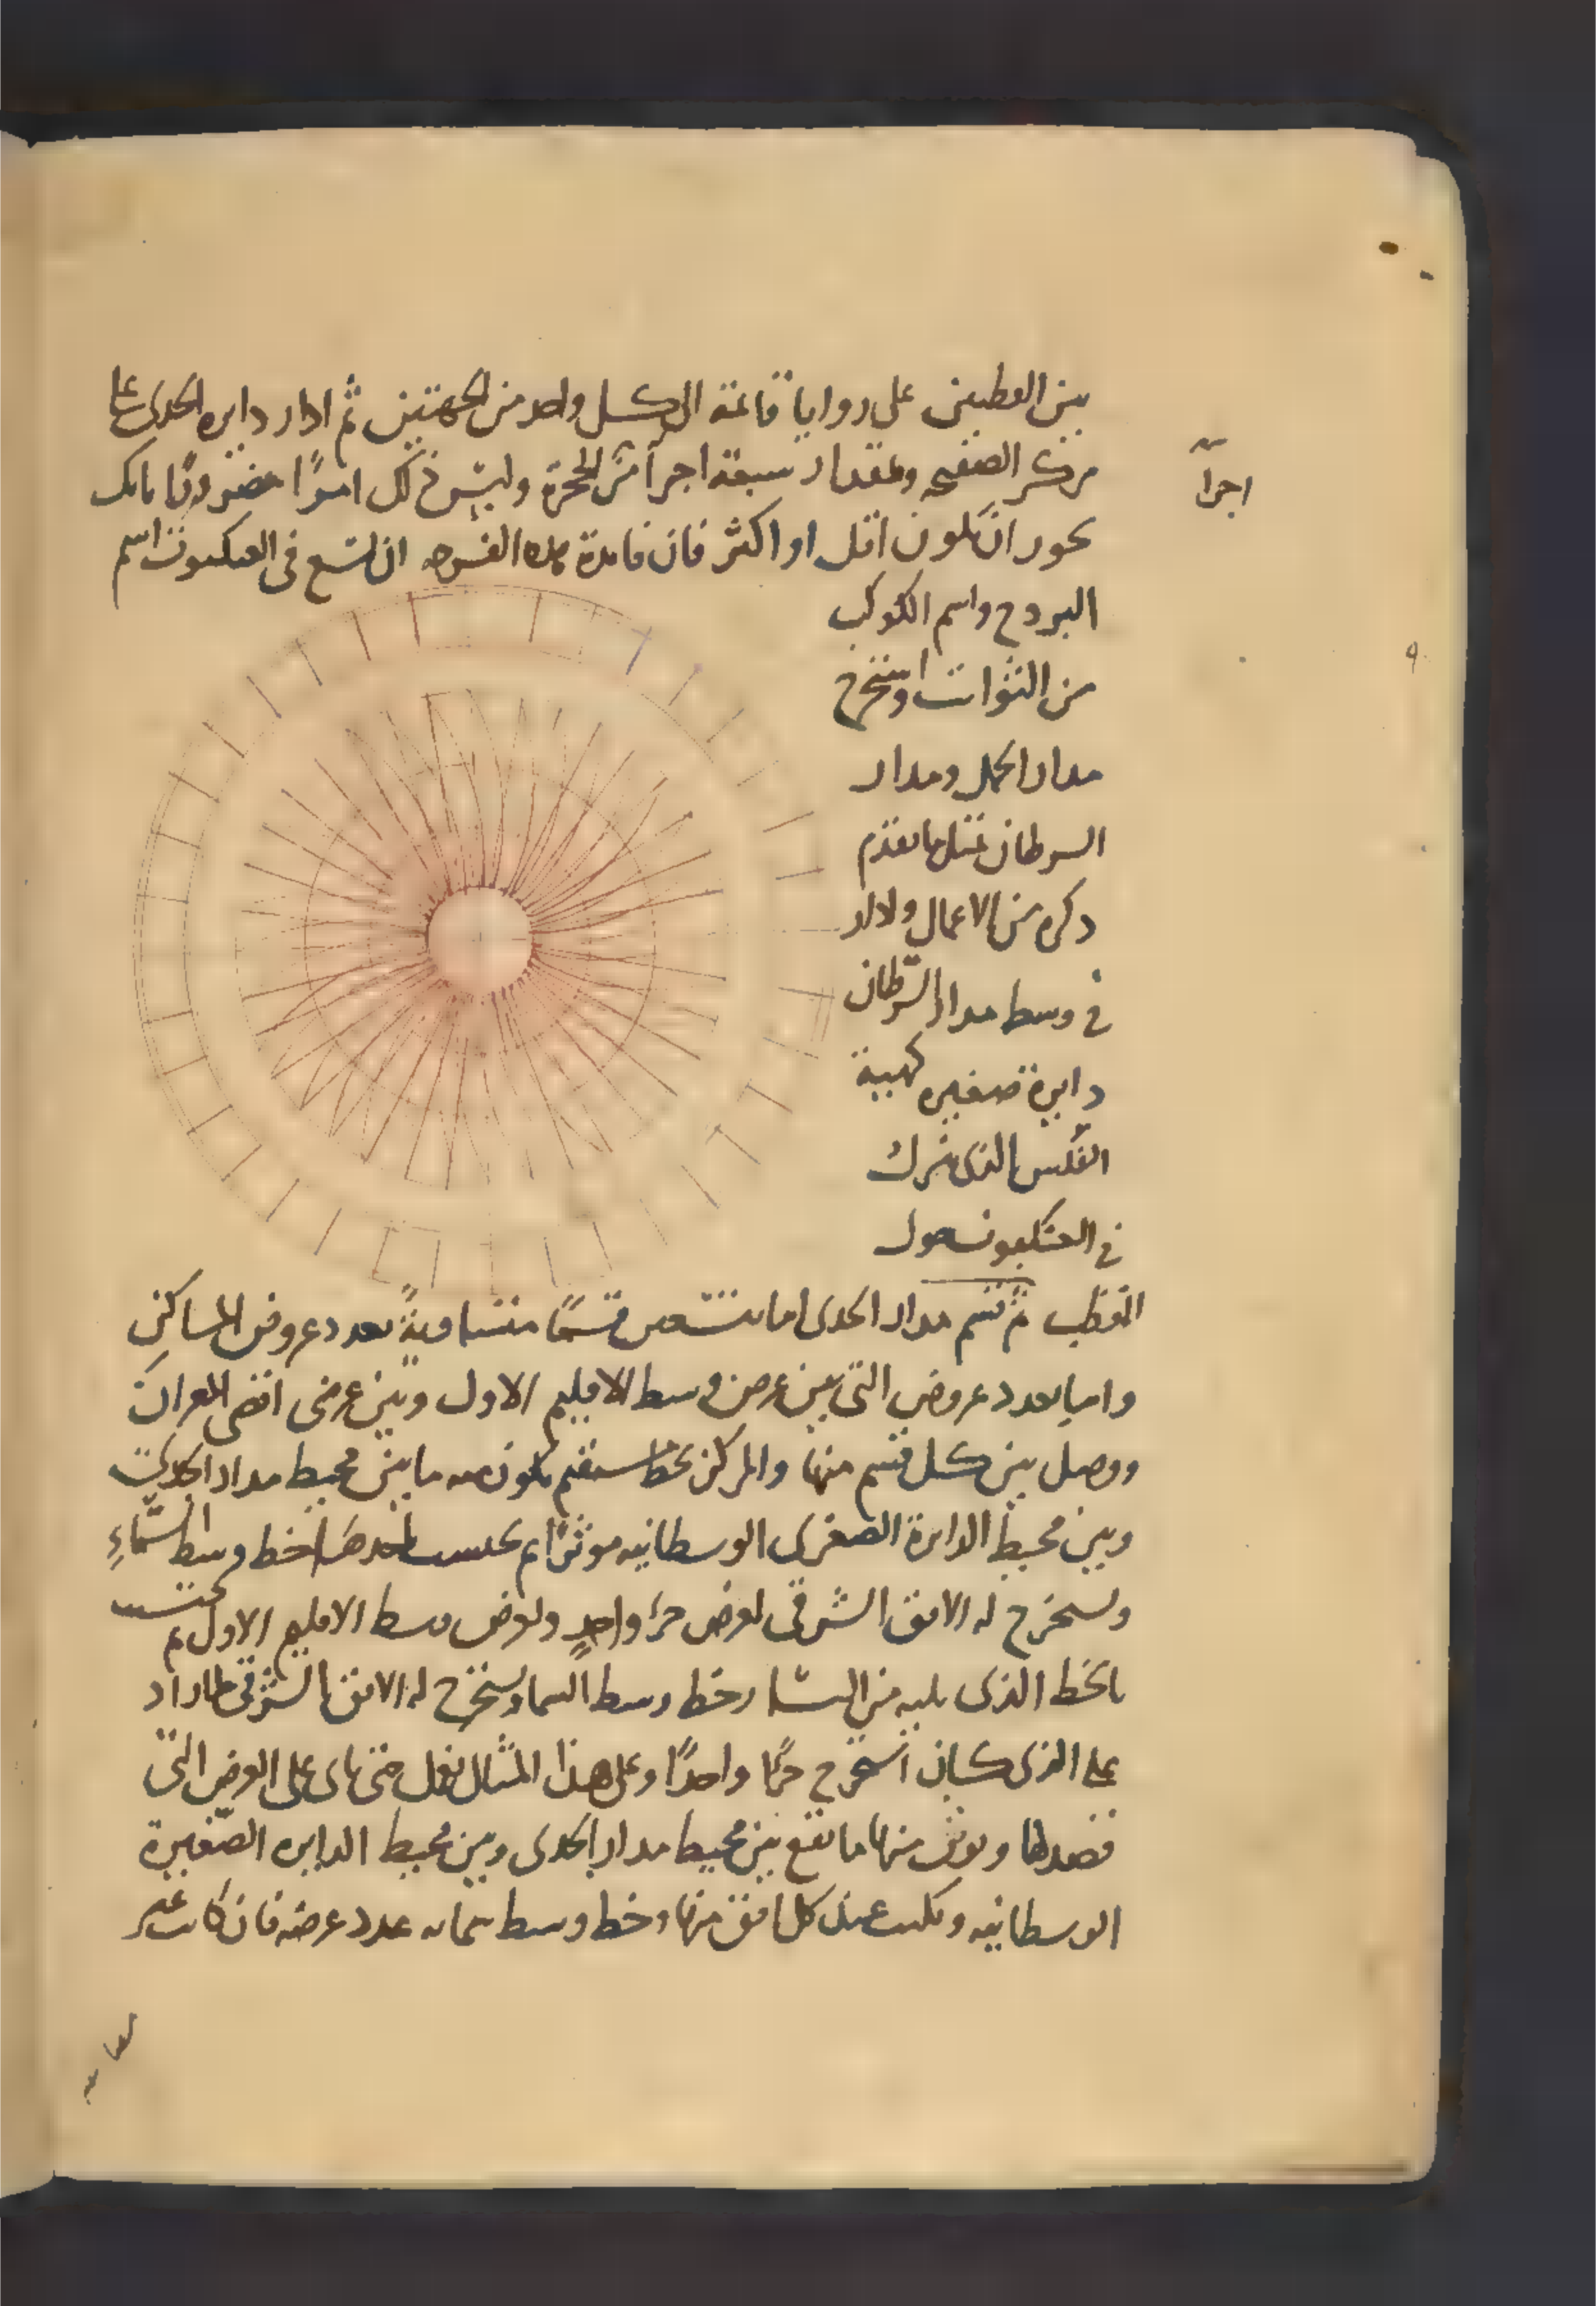 بين القطبين على زوايا قائمة الى كل واحد من الجهتين ثم ادار دايره الجدى على
مركز الصفيحه وبمقدار سبعة اجزآ من الحجرة وليس ذلك امرًا ضروريًا بل
يجوز ان يكون اقل او اكثر فان فايدة هذه الفرجه ان تسع فى العنكبوت اسم
اجزآ
البروج واسم الكواكب
من الثوابت واستخرج
مدار الحمل ومدار
السرطان بمثل ما تقدم
ذكره من الاعمال وادار
فى وسط مدار السرطان
دايرة صغيره كهيية
الفلس الذى يترك
فى العنكبوت حول
القطب ثم قسم مدار الجدى اما بتسعين قسمًا متساويةً بعدد عروض المساكن
واما بعدد عروض التى بين عرض وسط الاقليم الاول وبين عرض اقصى العمران
ووصل بين كل قسم منها والمركز بخط مستقيم يكون منه ما بين محيط مدار الجدى
وبين محيط الدايرة الصغرى الوسطانيه موثرًا ثم يحتسب باحدها خط وسط السّماءِ
ويستخرج له الافق الشرقى لعرض جزء واحدٍ ولعرض وسط الاقليم الاول ثم يحتسب
بالخط الذى يليه من اليسار خط وسط السما ويستخرج له الافق الشرقى لما زاد
على الذى كان استخرج جزءًا واحدًا وعلى هذا المثال نفعل حتى ياتى على العروض التى
قصدها ويوثر منها ما يقع بين محيط مدار الجدى وبين محيط الدايره الصّغيرة
الوسطانيه ويكتب عند كل افق منها وخط وسط سمائه عدد عرضه فان كانت غير